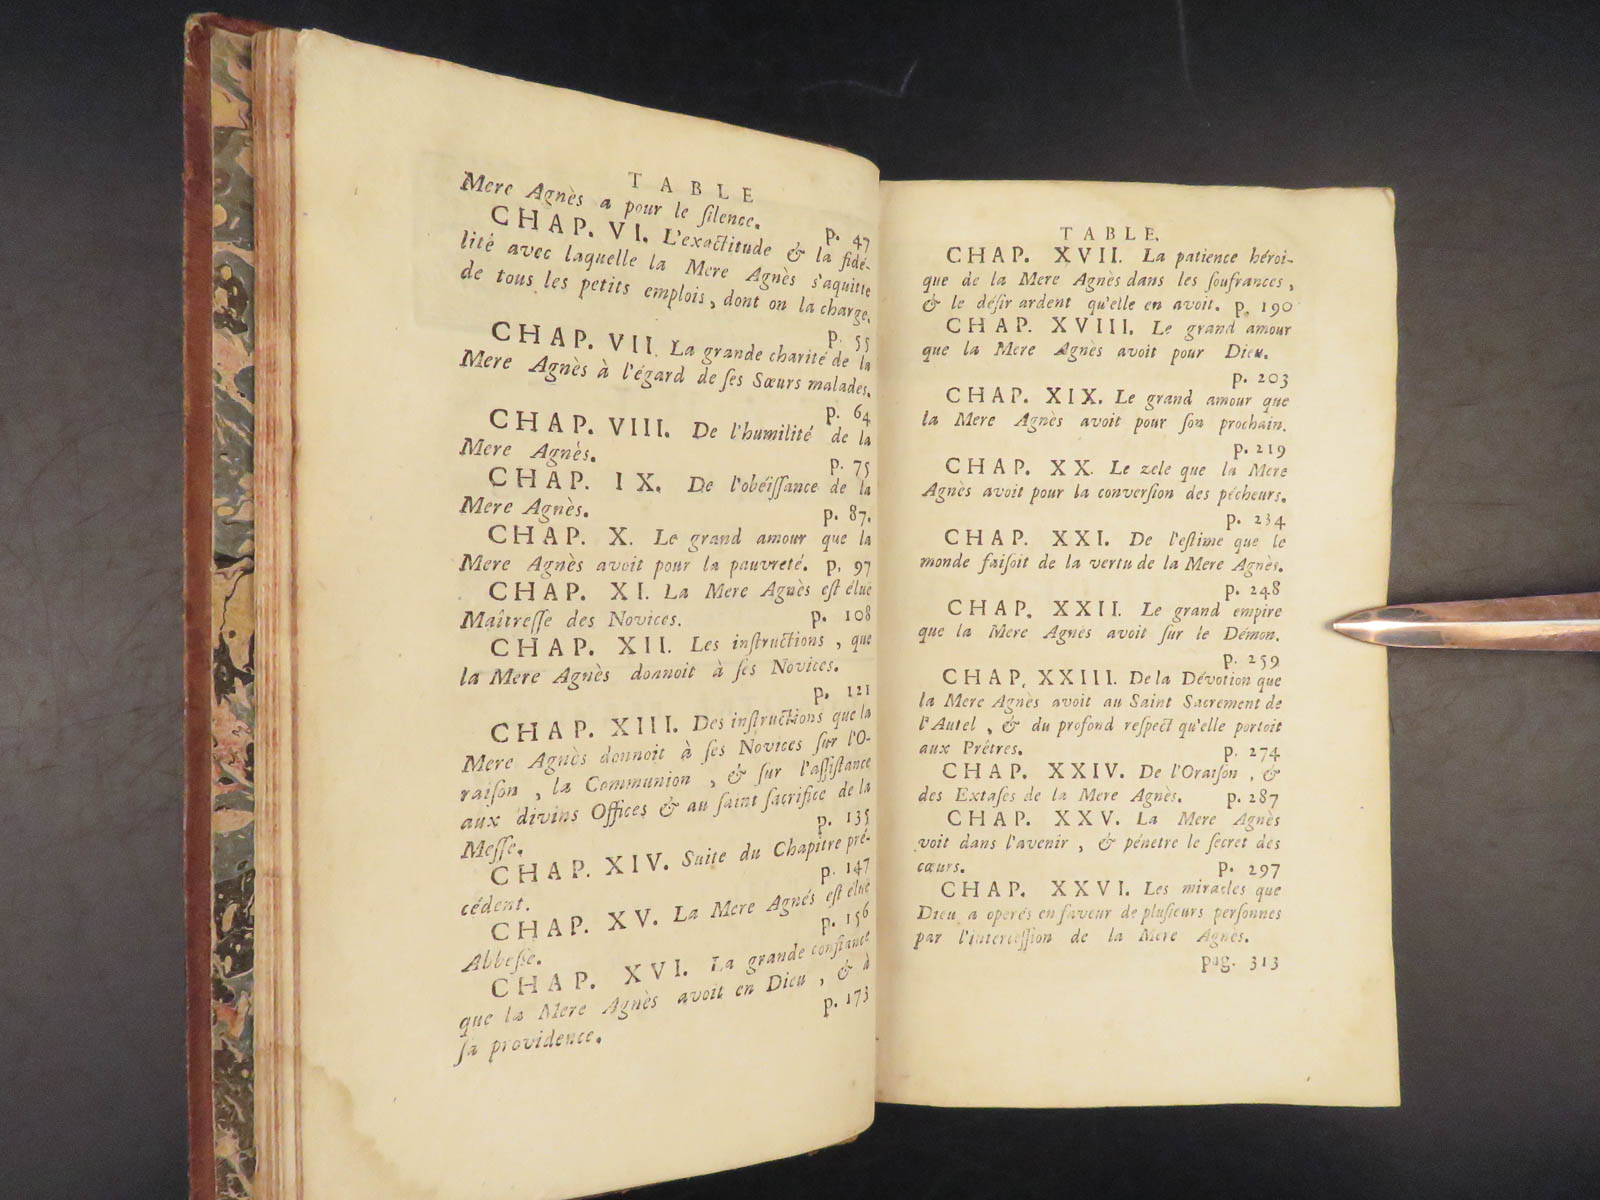 TABLE
Mere Agnès a pour le ſilence. p. 47
CHAP. VI. L'exactitude & la fidé-
lité avec laquelle la Mere Agnès s'aquitte
de tous les petits emplois, dont on la charge.
p. 55
CHAP. VII. La grande charité de la
Mere Agnès à l'égard de ſes Sœurs malades.
p. 64
CHAP. VIII. De l'humilité de la
Mere Agnès. p. 75
CHAP. IX. De l'obéiſſance de la
Mere Agnès. p. 87.
CHAP. X. Le grand amour que la
Mere Agnès avoit pour la pauvreté. p. 97
CHAP. XI. La Mere Agnès eſt éluë
Maîtreſſe des Novices. p. 108
CHAP. XII. Les inſtructions, que
la Mere Agnès donnoit à ſes Novices.
p. 121
CHAP. XIII. Des inſtructions que la
Mere Agnès donnoit à ſes Novices ſur l'O-
raiſon, la Communion, & ſur l'aſſiſtance
aux divins Offices & au ſaint ſacrifice de la
Meſſe. p. 135
CHAP. XIV. Suite du Chapitre pré-
cédent. p. 147
CHAP. XV. La Mere Agnés eſt éluë
Abbeſſe. p. 156
CHAP. XVI. La grande confiance
que la Mere Agnès avoit en Dieu, & à
ſa providence. p. 173
TABLE.
CHAP. XVII. La patience héroi-
que de la Mere Agnès dans les ſoufrances,
& le déſir ardent qu'elle en avoit. p. 190
CHAP. XVIII. Le grand amour
que la Mere Agnès avoit pour Dieu.
p. 203
CHAP. XIX. Le grand amour que
la Mere Agnès avoit pour ſon prochain.
p. 219
CHAP. XX. Le zele que la Mere
Agnès avoit pour la converſion des pécheurs.
p. 234
CHAP. XXI. De l'eſtime que le
monde faiſoit de la vertu de la Mere Agnès.
p. 248
CHAP. XXII. Le grand empire
que la Mere Agnès avoit ſur le Démon.
p. 259
CHAP. XXIII. De la Dévotion que
la Mere Agnès avoit au Saint Sacrement de
l'Autel, & du profond reſpect qu'elle portoit
aux Prêtres. p. 274
CHAP. XXIV. De l'Oraiſon, &
des Extaſes de la Mere Agnès. p. 287
CHAP. XXV. La Mere Agnès
voit dans l'avenir, & pénetre le ſecret des
cœurs. p. 297
CHAP. XXVI. Les miracles que
Dieu a operés en faveur de pluſieurs perſonnes
par l'interceſſion de la Mere Agnès.
pag. 313